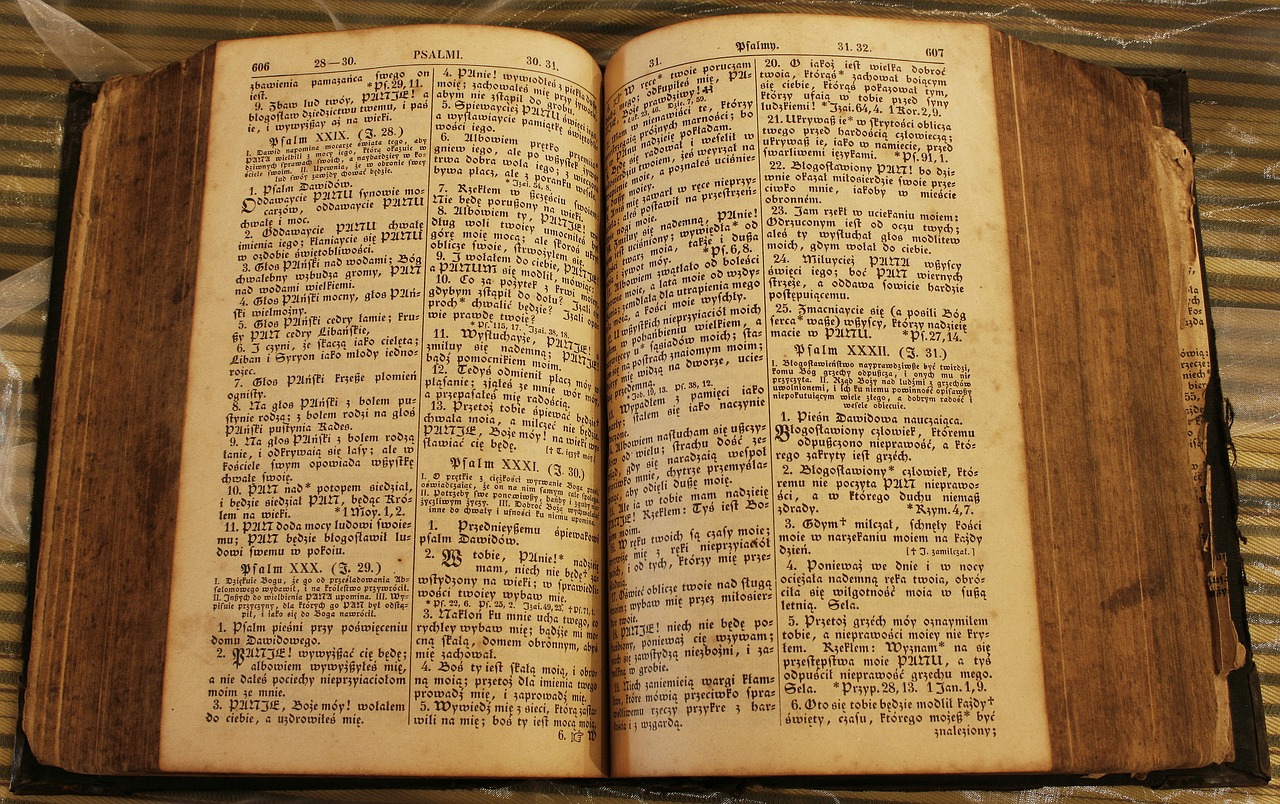 606 28—30. PSALMI. 30. 31.
zbawienia pamazańca swego on
jest. *Ps. 29, 11.
9. Zbaw lud twóy, PANJE! a
błogosław dziedzictwu twemu, i paś
ie, i wywyższay aż na wieki.
Psalm XXIX. (J. 28.)
I. Dawid napomina mocarze świata tego, aby
PANA wielbili z mocy iego, którą okazuie w
dziwnych sprawach swoich, a naybardziey w ko-
ściele swoim. II. Upewnia, że w obronie swey
lud swóy zawżdy chować będzie.
1. Psalm Dawidów.
Oddawaycie PANU synowie mo-
carzów, oddawaycie PANU
chwałę i moc.
2. Oddawaycie PANU chwałę
imienia iego; kłaniaycie się PANU
w ozdobie świętobliwości.
3. Głos PAński nad wodami; Bóg
chwalebny wzbudza gromy, PAN
nad wodami wielkiemi.
4. Głos PAński mocny, głos PAń-
ski wielmożny.
5. Głos PAński cedry łamie; kru-
szy PAN cedry Libańskie,
6. I czyni, że skaczą iako cielęta;
Liban i Syryon iako młody iedno-
rożec.
7. Głos PAński krzesze płomień
ognisty.
8. Na głos PAński z bolem pu-
stynie rodzą; z bolem rodzi na głos
PAński pustynia Kades.
9. Na głos PAński z bolem rodzą
łanie, i odkrywaią się lasy; ale w
kościele swym opowiada wszystkę
chwałę swoię.
10. PAN nad* potopem siedział,
i będzie siedział PAN, będąc Kró-
lem na wieki. *1 Moy. 1, 2.
11. PAN doda mocy ludowi swoie-
mu; PAN będzie błogosławił lu-
dowi swemu w pokoiu.
Psalm XXX. (J. 29.)
I. Dziękuie Bogu, że go od prześladowania Ab-
salomowego wybawił, i na królestwo przywrócił.
II. Inszych do wielbienia PANA upomina. III. Wy-
pisuie przyczyny, dla których go PAN był odstą-
pił, i iako się do Boga nawrócił.
1. Psalm pieśni przy poświęceniu
domu Dawidowego.
2. PANJE! wywyższać cię będę;
albowiem wywyższyłeś mię,
a nie dałeś pociechy nieprzyiaciołom
moim ze mnie.
3. PANJE, Boże móy! wołałem
do ciebie, a uzdrowiłeś mię.
4. PAnie! wywiodłeś z piekła duszę
moię; zachowałeś mię przy żywocie
abym nie zstąpił do grobu.
5. Śpiewaycież PANU święci iego,
a wysławiaycie pamiątkę święto-
wości iego.
6. Albowiem prędko przemiia
gniew iego, ale po wszystek żywot
trwa dobra wola iego; z wieczora
bywa płacz, ale z poranku wesele.
* Jzai. 54, 8.
7. Rzekłem w szczęściu swoiem:
Nie będę poruszony na wieki.
8. Albowiem ty, PANJE!
dług woli twoiey umocniłeś
górę moię mocą; ale skoroś ukrył
oblicze swoie, strwożyłem się.
9. J wołałem do ciebie, PANJE!
a PANUM się modlił, mówiąc:
10. Co za pożytek z krwi moiey,
gdybym zstąpił do dołu? Jzali
proch* chwalić będzie? Jzali opo-
wie prawdę twoię?
* Ps. 115, 17. Jzai. 38, 18.
11. Wysłuchayże, PANJE!
zmiłuy się nademną; PANJE
bądź pomocnikiem moim.
12. Tedyś odmienił płacz móy w
pląsanie; zjąłeś ze mnie wór móy
a przepasałeś mię radością.
13. Przetoż tobie śpiewać będzie
chwała moia, a milczeć nie będzie.
PANJE, Boże móy! na wieki wy-
sławiać cię będę. [† T. język móy.]
Psalm XXXI. (J. 30.)
I. O prętkie z ciężkości wyrwanie Boga prosi,
oświadczaiąc, że on na nim samym całe polega.
II. Potrzeby swe ponowiwszy, hańby i zguby nie-
życzliwym życzy. III. Dobroć Bożę wychwaliwszy
inne do chwały i ufności ku niemu upomina.
1. Przednieyszemu śpiewakowi
psalm Dawidów.
2. W tobie, PAnie!* nadzieię
mam, niech nie będę† za-
wstydzony na wieki; w sprawiedli-
wości twoiey wybaw mię.
* Ps. 22, 6. Ps. 25, 2. Jzai. 49, 23. † Ps. 71, 1.
3. Nakłoń ku mnie ucha twego, co
rychley wybaw mię; bądźże mi mo-
cną skałą, domem obronnym, abyś
mię zachował.
4. Boś ty iest skałą moią, i obro-
ną moią; przetoż dla imienia twego
prowadź mię, i zaprowadź mię.
5. Wywiedź mię z sieci, którą zasta-
wili na mię; boś ty iest mocą moią.
6. ☞ W
31. Psalmy. 31. 32. 607
W ręce* twoie poruczam
mego; odkupiłeś mię, PA-
prawdziwy!
w nienawiści te, którzy
próżnych marności; bo
PAnu nadzieię pokładam.
się radował i weselił w
miłosierdziu twoiem, żeś weyrzał na
moie, a poznałeś uciśnie-
moiey.
mię zawarł w ręce nieprzy-
aleś postawił na przestrzeń-
nogi moie.
Zmiłuy się nademną, PAnie!
uciśniony; wywiędła* od
twarz moia, także i dusza
żywot móy. *Ps. 6, 8.
Albowiem zwątlało od boleści
moie, a lata moie od wzdy-
zemdlała dla utrapienia mego
moia, a kości moie wyschły.
U wszystkich nieprzyiaciół moich
w pohańbieniu wielkiem, a
u* sąsiadów moich; sta-
na postrach znaiomym moim;
mię widzą na dworze, ucie-
przedemną.
*Job. 19, 13. Ps. 38, 12.
Wypadłem z pamięci iako
stałem się iako naczynie
Albowiem nasłucham się uszczy-
od wielu; strachu dość ze-
gdy się naradzaią wespoł
mnie, chytrze przemyśla-
aby odięli duszę moię.
Ale ia w tobie mam nadzieię
PANJE! Rzekłem: Tyś iest Bo-
moim.
W ręku twoich są czasy moie;
mię z ręki nieprzyiaciół
i od tych, którzy mię prze-
Oświeć oblicze twoie nad sługą
twoim; wybaw mię przez miłosier-
twoie.
PANJE! niech nie będę po-
hańbiony, ponieważ cię wzywam;
niech się zawstydzą niezbożni, i za-
milkną w grobie.
Niech zaniemieią wargi kłam-
które mówią przeciwko spra-
wiedliwemu rzeczy przykre z har-
dością i z wzgardą.
20. O iakoż iest wielka dobroć
twoia, którąś* zachował boiącym
się ciebie, którąś pokazował tym,
którzy ufaią w tobie przed syny
ludzkiemi! *Jzai. 64, 4. 1 Kor. 2, 9.
21. Ukrywasz ie* w skrytości oblicza
twego przed hardością człowieczą;
ukrywasz ie, iako w namiecie, przed
swarliwemi językami. *Ps. 91, 1.
22. Błogosławiony PAN! bo dzi-
wnie okazał miłosierdzie swoie prze-
ciwko mnie, iakoby w mieście
obronnem.
23. Jam rzekł w uciekaniu moiem:
Odrzuconym iest od oczu twych;
aleś ty wysłuchał głos modlitew
moich, gdym wołał do ciebie.
24. Miłuycież PANA wszyscy
święci iego; boć PAN wiernych
strzeże, a oddawa sowicie hardzie
postępuiącemu.
25. Zmacniaycie się (a posili Bóg
serca* wasze) wszyscy, którzy nadzieię
macie w PANU. *Ps. 27, 14.
Psalm XXXII. (J. 31.)
I. Błogosławieństwo nayprawdziwsze być twierdzi,
komu Bóg grzechy odpuszcza, i onych mu nie
przyczyta. II. Rząd Boży nad ludźmi z grzechów
uwolnionemi, i ich ku niemu powinność opisawszy
niepokutuiącym wiele złego, a dobrym radość i
wesele obiecuie.
1. Pieśń Dawidowa nauczaiąca.
Błogosławiony człowiek, któremu
odpuszczono nieprawość, a któ-
rego zakryty iest grzéch.
2. Błogosławiony* człowiek, któ-
remu nie poczyta PAN nieprawo-
ści, a w którego duchu niemasz
zdrady. *Rzym. 4, 7.
3. Gdym† milczał, schnęły kości
moie w narzekaniu moiem na każdy
dzień. [† J. zamilczał.]
4. Ponieważ we dnie i w nocy
ociężała nademną ręka twoia, obró-
ciła się wilgotność moia w suszą
letnią. Sela.
5. Przetoż grzéch móy oznaymiłem
tobie, a nieprawości moiey nie kry-
łem. Rzekłem: Wyznam* na się
przestępstwa moie PANU, a tyś
odpuścił nieprawość grzechu mego.
Sela. *Przyp. 28, 13. 1 Jan. 1, 9.
6. Oto się tobie będzie modlił każdy†
święty, czasu, którego możesz* być
znaleziony;